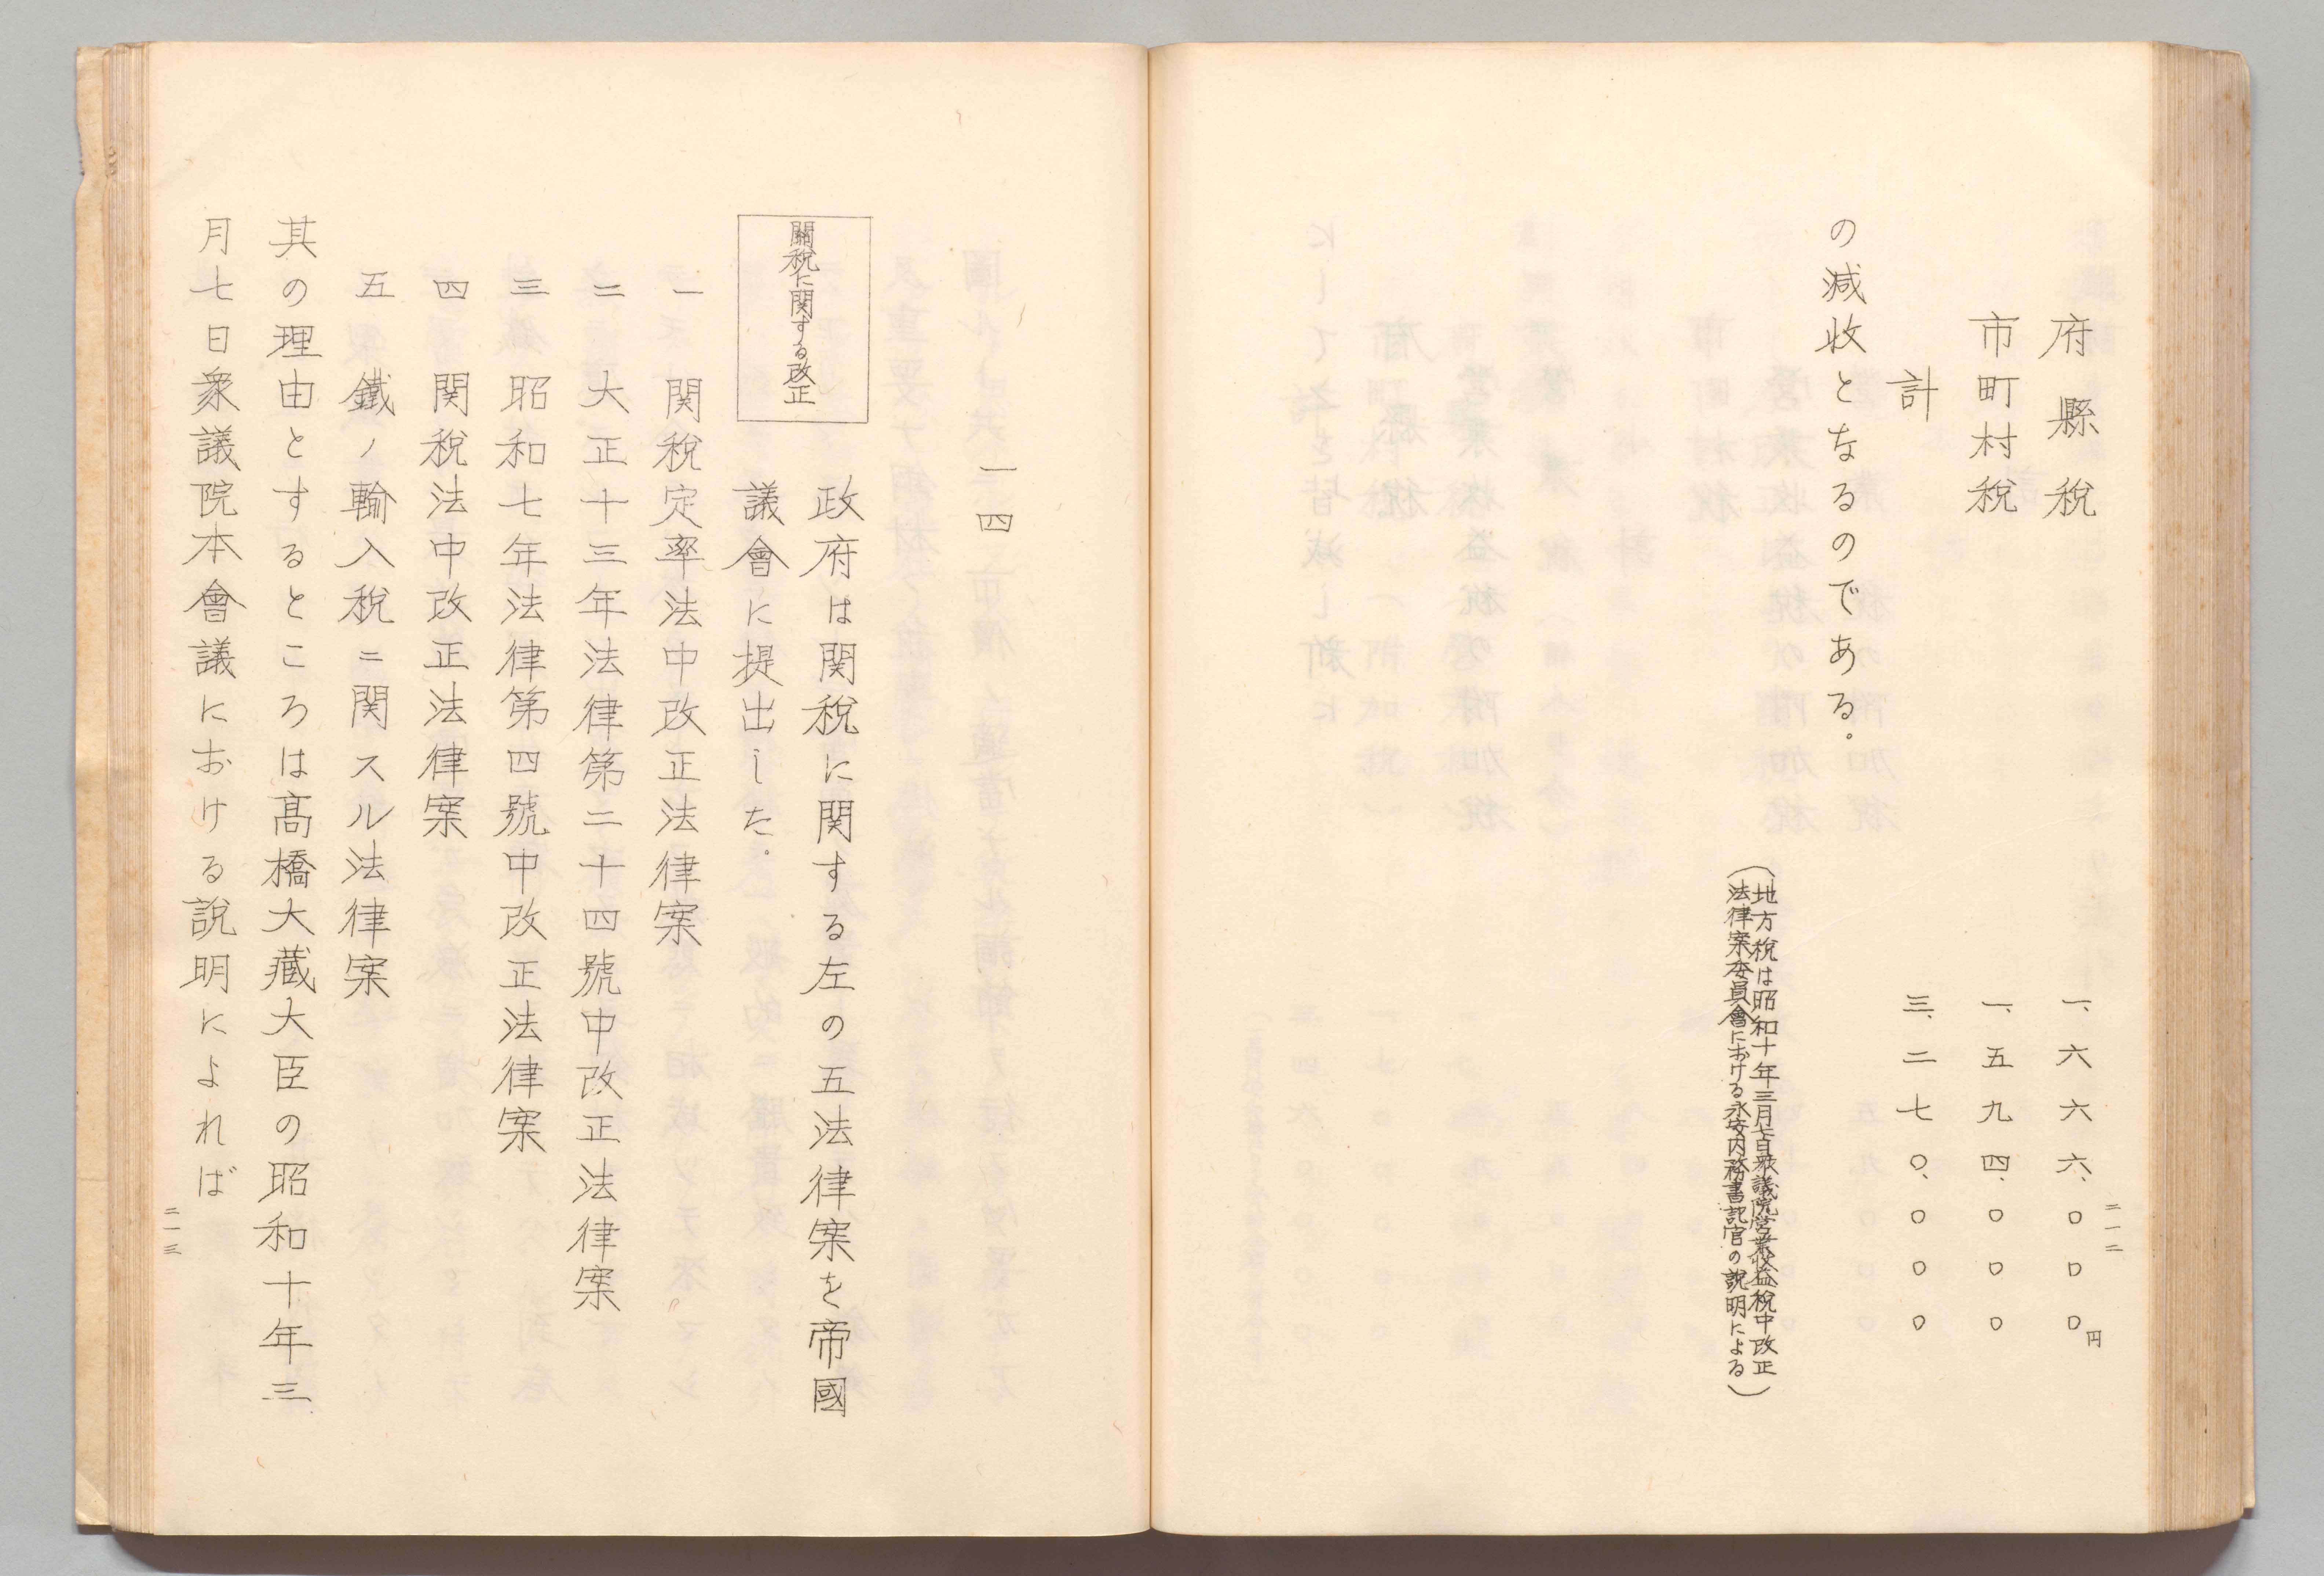 府縣税 一、六六六、〇〇〇円
市町村税 一、五九四、〇〇〇
計 三、二七〇、〇〇〇
の減收となるのである。
(地方税は昭和十年三月七日衆議院営業收益税中改正
法律案委員會における永安内務書記官の説明による)
二一二
一四
関税に関する改正
政府は関税に関する左の五法律案を帝國
議會に提出した。
一 関税定率法中改正法律案
二 大正十三年法律第二十四號中改正法律案
三 昭和七年法律第四號中改正法律案
四 関税法中改正法律案
五 鐵ノ輸入税ニ関スル法律案
其の理由とするところは髙橋大藏大臣の昭和十年三
月七日衆議院本會議における説明によれば
二一三